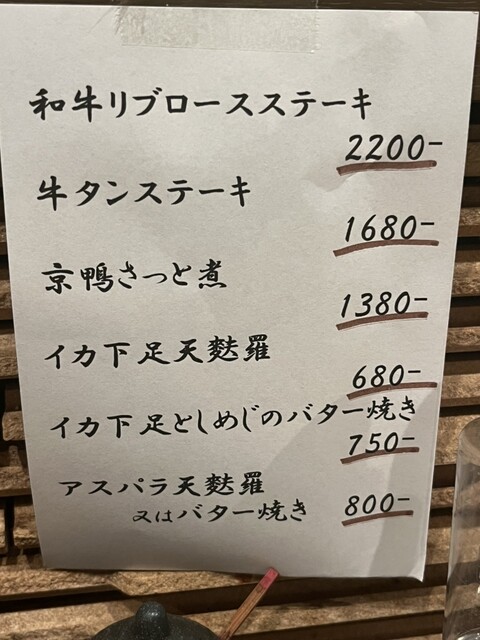 和牛リブロースステーキ
2200-
牛タンステーキ
1680-
京鴨さっと煮
1380-
イカ下足天麩羅
680-
イカ下足としめじのバター焼き
750-
アスパラ天麩羅
又はバター焼き 800-